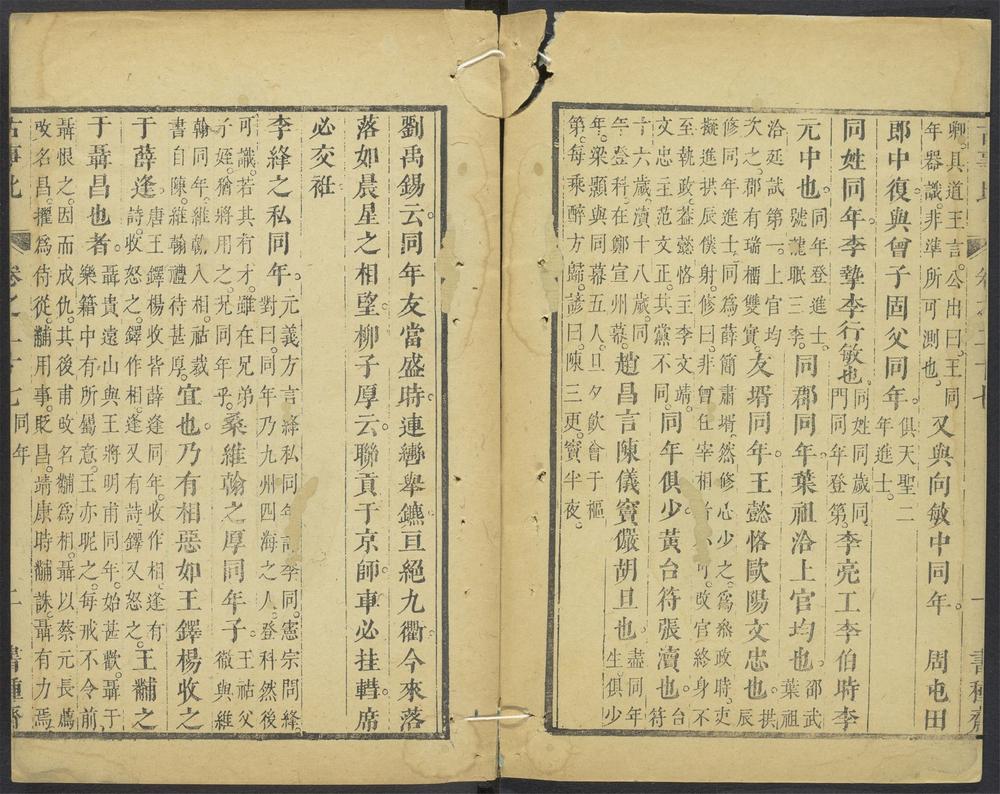 卿。具道王言。公出曰。王同
年器識。非準所可測也。
又與向敏中同年。周屯田
郎中復。與曾子固父同年。
俱天聖二
年進士。
同姓同年。李摯李行敏也。
同姓同歲同
門同年登第。
李亮工李伯時李
元中也。
同年登進士。
號龍眠三李。
同郡同年。葉祖洽上官均也。
邵武
葉祖
洽廷試第一。上官均
次之。郡有瑞㯶雙實。
友壻同年。王懿恪歐陽文忠也。
拱
辰
修同年進士。同為薛簡肅壻。然修心少之。為叅政時。吏
擬進拱辰僕射。修曰。非曾任宰相者不可。改官終身不
至執政。葢懿恪主李文靖。
文忠主范文正。其黨不同。
同年俱少。黃台符張瀆也。
台
符
十六歲。瀆十八歲。同
年登科。在鄭宣州幕。
趙昌言陳儀寶儼胡旦也。
盡同年
生。俱少
年。梁顥與同幕五人。旦夕飲會于樞
第。每乘醉方歸。諺曰。陳三更。竇半夜。
劉禹錫云。同年友當盛時。連轡舉鑣。亘絕九衢。今來落
落如晨星之相望。柳子厚云。聯貢于京師。車必挂轊。席
必交袵。
李絳之私同年。
元義方言絳私同年許季同。憲宗問絳。
對曰。同年乃九州四海之人。登科然後
可識。若其有才。雖在兄弟
子姪。猶將用之。况同年乎。
桑維翰之厚同年子。
王祜父
徹與維
翰同年。維翰入相。祜裁
書自陳。維翰禮待甚厚。
宜也。乃有相惡如王鐸楊收之
于薛逢。
唐王鐸楊收皆薛逢同年。收作相。逢有
詩。收怒之。鐸作相。逢又有詩。鐸又怒之。
王黼之
于聶昌也者。
聶貴遠山與王將明甫同年。始甚歡。聶于
樂籍中有所屬意。王亦昵之。每戒不令前。
聶恨之。因而成仇。其後甫改名黼為相。聶以蔡元長薦。
改名昌。擢為侍從。黼用事。貶昌。靖康時。黼誅。聶有力焉。
卷之二十七
同年
二
書種齋